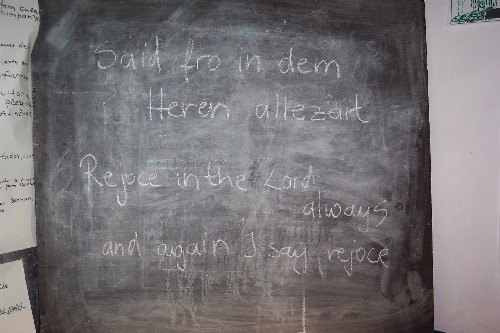 Said fro in dem
Heren allezait
Rejoce in the Lord
always
and again I say, rejoce